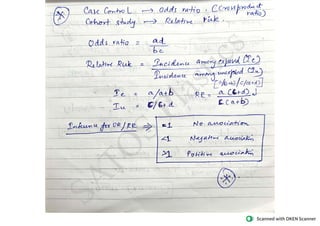 Case Control → Odds ratio. (Cross product ratio)
Cohort study → Relative risk.
Odds ratio = ad/bc
Relative Risk = Incidence among exposed (Ie)
Incidence among unexposed (Iu)
[a/a+b/c/c+d]
Ie = a/a+b
RR = a(c+d)
c(a+b)
Iu = c/c+d
Inference for OR/RR ⇒
=1 No association
<1 Negative association
>1 Positive association
Scanned with OKEN Scanner